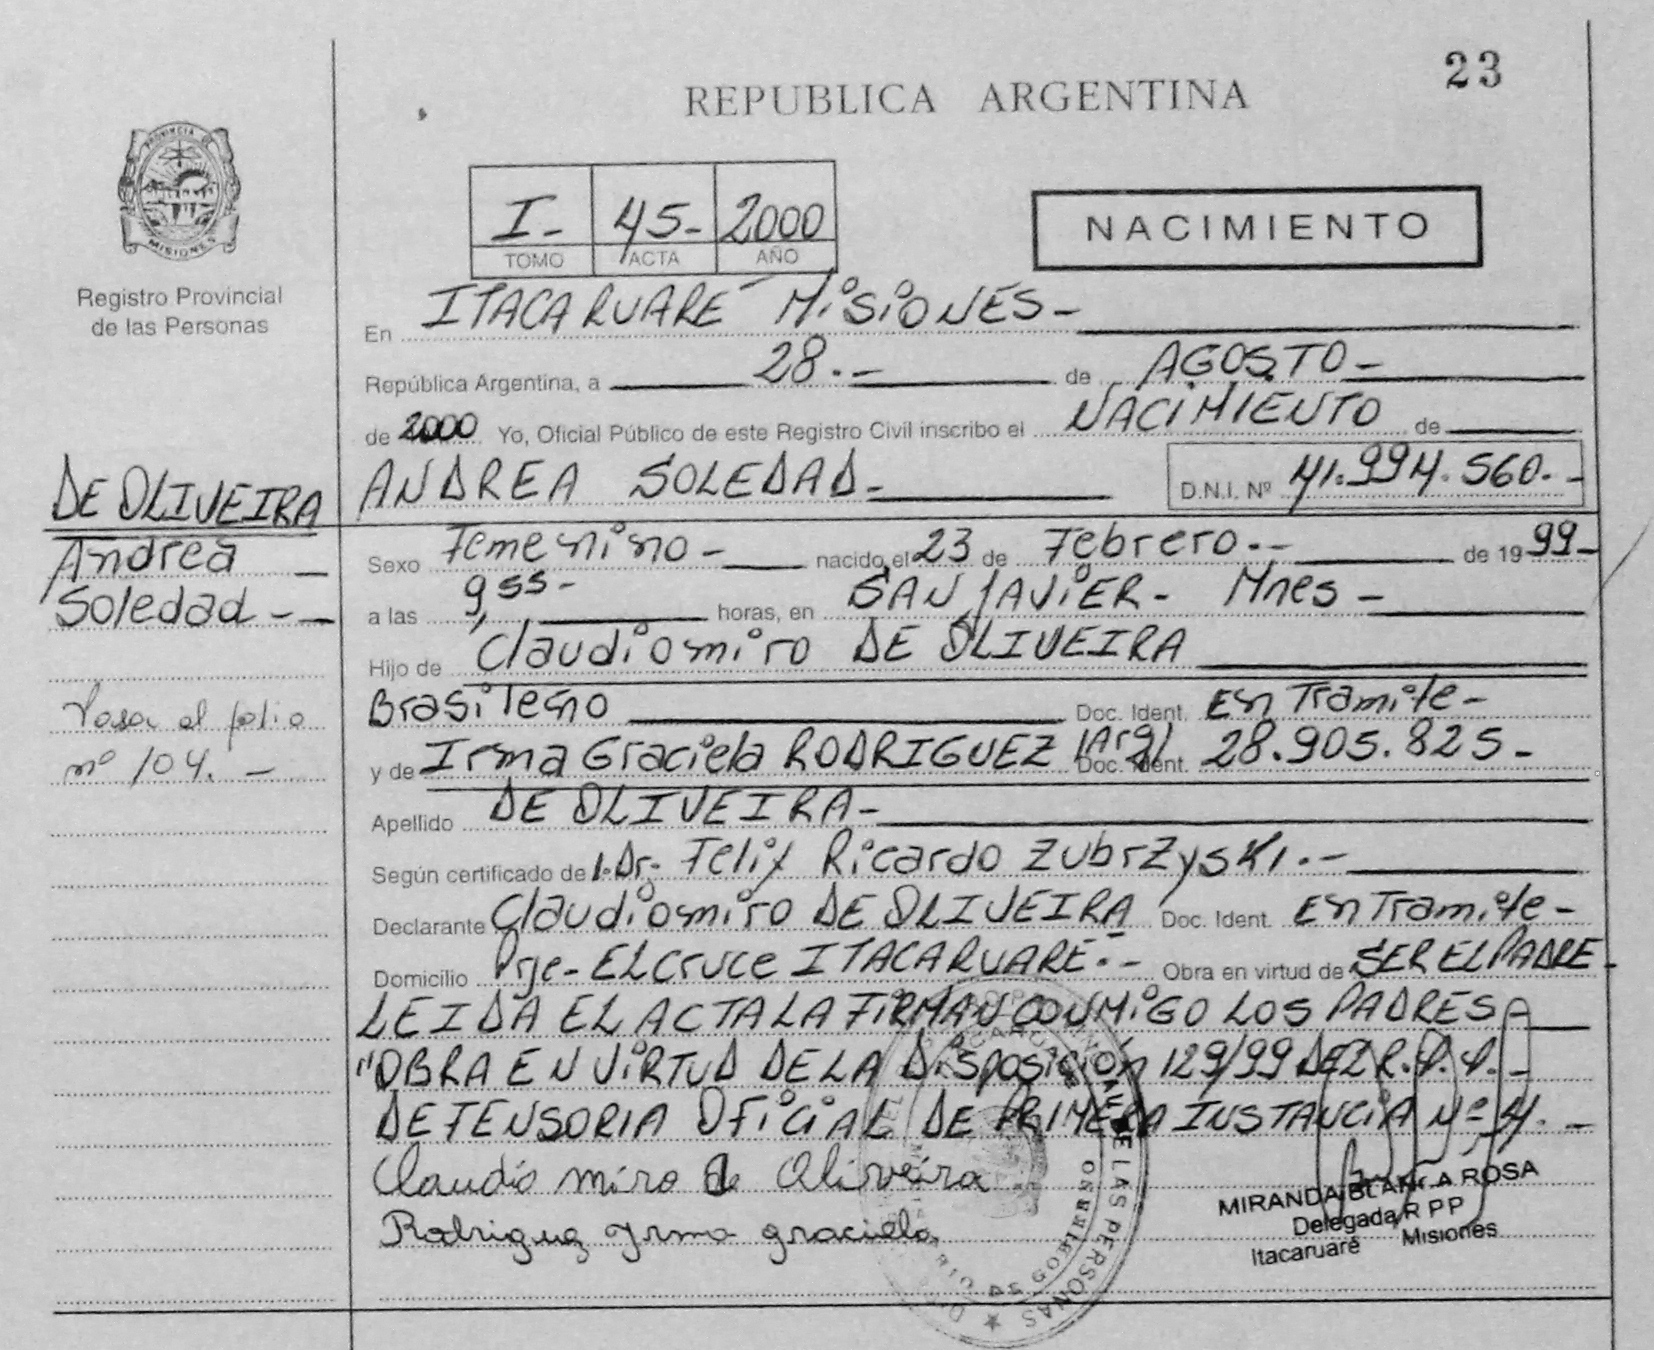 23
REPUBLICA ARGENTINA
PROVINCIA DE
MISIONES
Registro Provincial
de las Personas
I- 45- 2000
TOMO ACTA AÑO
NACIMIENTO
En ITACARUARÉ MiSiONES-
República Argentina, a 28.- de AGOSTO-
de 2000 Yo, Oficial Público de este Registro Civil inscribo el NACIMIENTO de
ANDREA SOLEDAD- D.N.I. Nº 41.994.560.-
DE OLIVEIRA
Andrea
Soledad-
Pasa al folio
nº 104.-
Sexo Femenino- nacido el 23 de Febrero.- de 1999-
a las 9,55- horas, en SAN JAViER- Mnes-
Hijo de Claudiomiro DE OLIVEIRA
Brasileño Doc. Ident. En Tramite-
y de Irma Graciela RODRIGUEZ (Arg) Doc. Ident. 28.905.825-
Apellido DE OLIVEIRA-
Según certificado de l. Dr. Felix Ricardo Zubrzyski.-
Declarante Claudiomiro DE OLIVEIRA Doc. Ident. En Tramite-
Domicilio Pje- El Cruce ITACARUARÉ.- Obra en virtud de SER EL PADRE
LEIDA EL ACTA LA FiRMAN CONMiGO LOS PADRES-
"OBRA EN ViRTUD DE LA DisposiciÓn 129/99 DEL R.P.P.-
DEFENSORIA OFiCiAL DE PRIMERA INSTANCiA Nº 4.-
Claudio miro de Oliveira
Rodriguez Yrma graciela
MIRANDA BLANCA ROSA
Delegada R P P
Itacaruaré Misiones
DE LAS PERSONAS